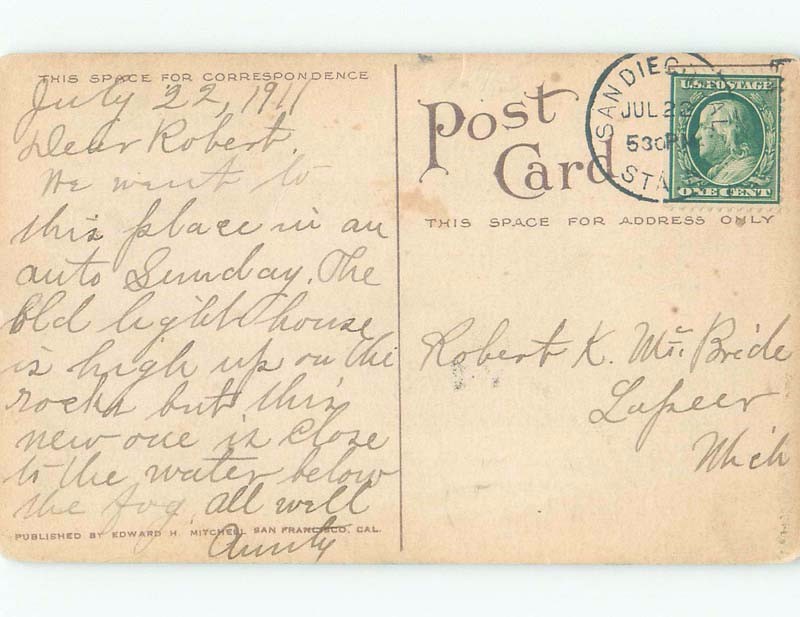 THIS SPACE FOR CORRESPONDENCE
July 22, 1911
Dear Robert.
We went to
this place in an
auto Sunday. The
old light house
is high up on the
rocks but this
new one is close
to the water below
the fog, all well
Aunty
PUBLISHED BY EDWARD H. MITCHELL SAN FRANCISCO, CAL.
Post
Card
SAN DIEGO, CAL
JUL 22
530 PM
STA
U.S. POSTAGE
ONE CENT
THIS SPACE FOR ADDRESS ONLY
Robert K. Mc Bride
Lapeer
Mich